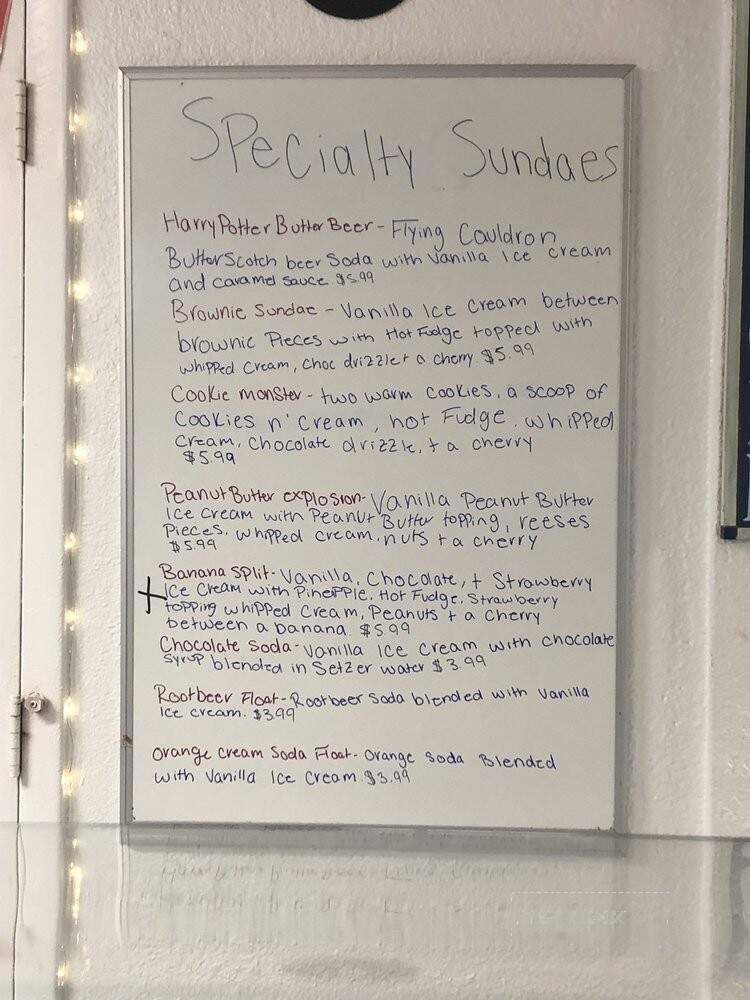 Specialty Sundaes
Harry Potter Butter Beer - Flying Cauldron
ButterScotch beer Soda with Vanilla Ice cream
and caramel sauce $5.99
Brownie Sundae - Vanilla Ice Cream between
brownie Pieces with Hot Fudge topped with
whipped cream, choc drizzle + a cherry $5.99
Cookie monster - two warm cookies, a scoop of
Cookies n' Cream, hot Fudge, whipped
Cream, Chocolate drizzle, + a cherry
$5.99
Peanut Butter explosion - Vanilla Peanut Butter
Ice Cream with Peanut Butter topping, reeses
Pieces, whipped cream, nuts + a cherry
$5.99
Banana Split - Vanilla, Chocolate, + Strawberry
+ Ice Cream with Pineapple, Hot Fudge, Strawberry
topping whipped cream, Peanuts + a Cherry
between a banana. $5.99
Chocolate Soda - Vanilla Ice Cream with chocolate
Syrup blended in Setzer water $3.99
Rootbeer Float - Rootbeer Soda blended with Vanilla
Ice cream. $3.99
Orange Cream Soda Float - Orange Soda Blended
with Vanilla Ice Cream. $3.99